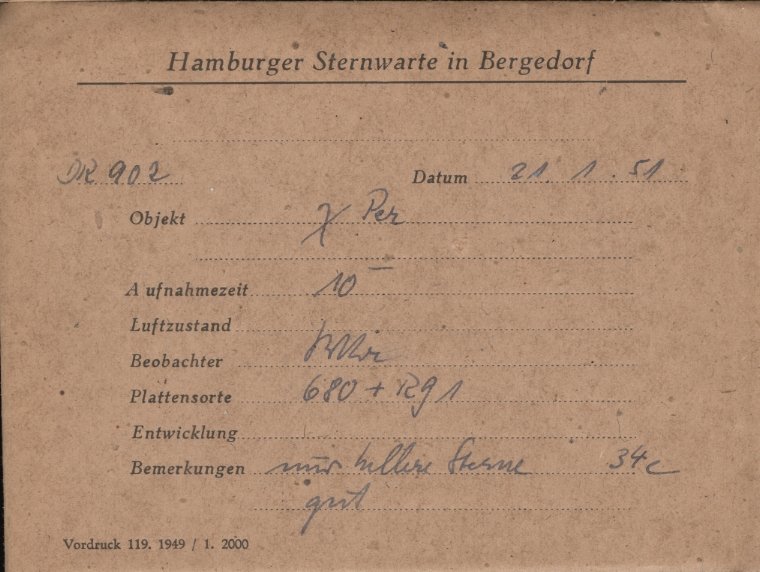 Hamburger Sternwarte in Bergedorf
DR 902 Datum 21. 1. 51
Objekt χ Per
Aufnahmezeit 10
Luftzustand
Beobachter
Plattensorte 680 + RG 1
Entwicklung
Bemerkungen nur hellere Sterne 34c
gut
Vordruck 119. 1949 / 1. 2000